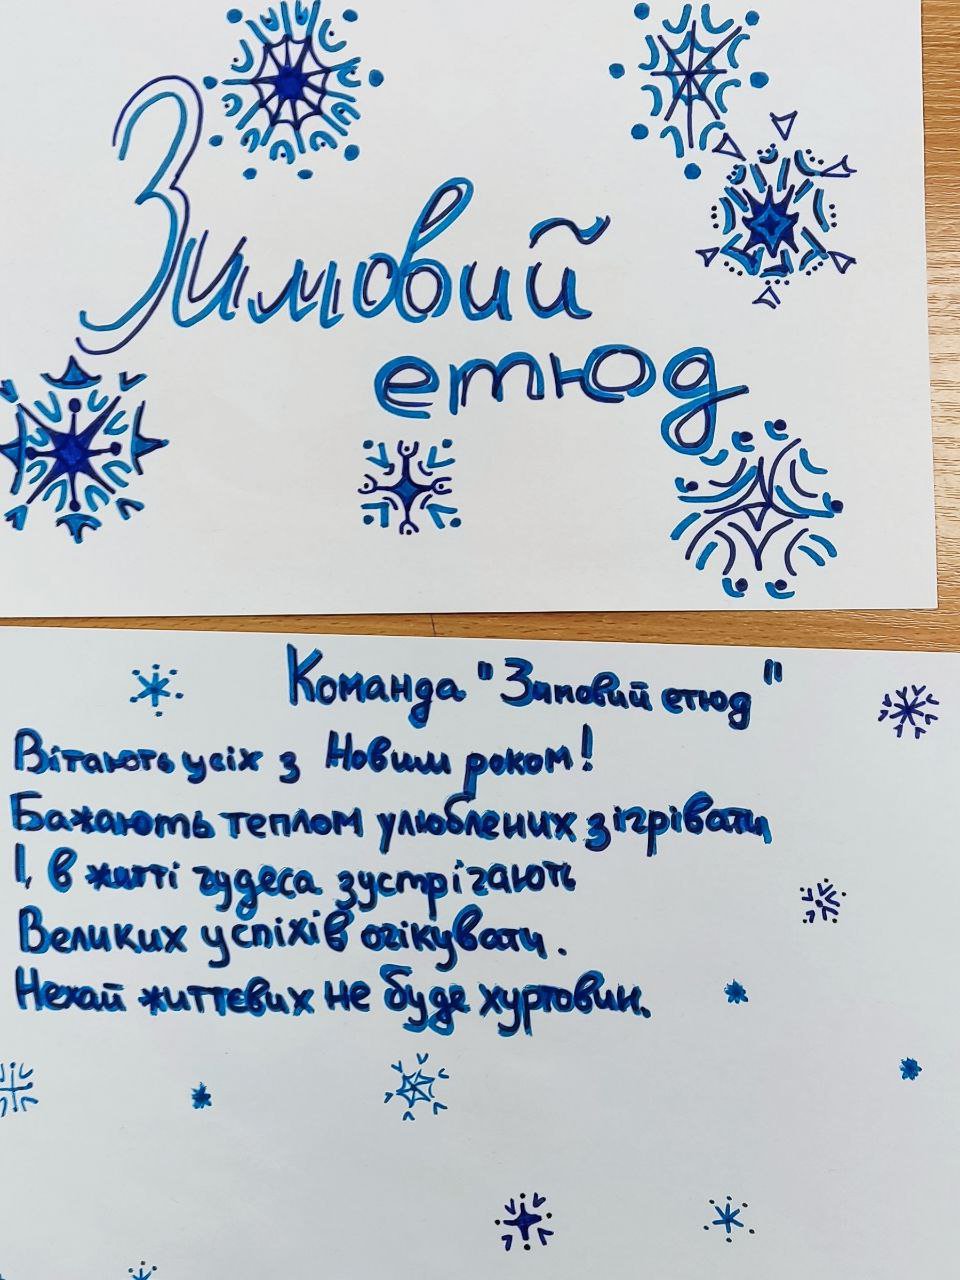 Зимовий
етюд
Команда "Зимовий етюд"
Вітають усіх з Новим роком!
Бажають теплом улюблених зігрівати
І, в житті чудеса зустрічають
Великих успіхів очікувати.
Нехай життєвих не буде хуртовин.